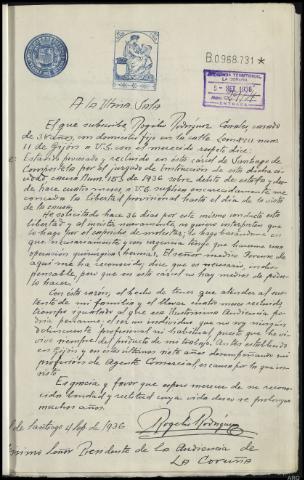 B.0.968.731 *
AUDIENCIA TERRITORIAL
LA CORUÑA
5 - SET 1936
ENTRADA
A la Iltma Sala
El que suscribe Rogelio Rodríguez Corrales, casado
de 31 años, con domicilio fijo en la calle
11 de Gijón a V.S. con el merecido respeto dice:
Estando procesado y recluido en esta cárcel de Santiago de
Compostela por el juzgado de Instrucción de esta
causa número de 1936 sobre delito de estafa y des-
de hace cuatro meses, a V.S. suplica me
conceda la libertad provisional hasta el día de la vista
de la causa.
He solicitado hace 36 días por este mismo conducto esta
libertad y al insistir nuevamente, no quiero interpreten que
lo haga por el capricho de molestar: lo hago basándome en
que necesariamente y con urgencia tengo que hacerme una
operación quirúrgica (hernia). El señor médico Forense de
aquí me ha reconocido, dice que es necesario, indis-
pensable, pero que en esta cárcel no hay medios de poder-
lo hacer.
Con esta razón, el hecho de tener que atender al sus-
tento de mi familia y el llevar cuatro meses recluido
tiempo igualado al que esa Ilustrísima Audiencia po-
dría penarme, y ser un individuo que no soy ningún
delincuente profesional ni habitual puesto que he vi-
vido siempre del producto de mi trabajo. Antes establecido
en Gijón y en estos últimos siete años desempeñando mi
profesión de Agente Comercial, es causa por lo que in-
sisto.
Es gracia y favor que espera merecer de su recono-
cida bondad y rectitud cuya vida deseo se prolongue
muchos años.
de Santiago 4 Sep. de 1936
Rogelio Rodríguez
Señor Presidente de la Audiencia de
LA CORUÑA